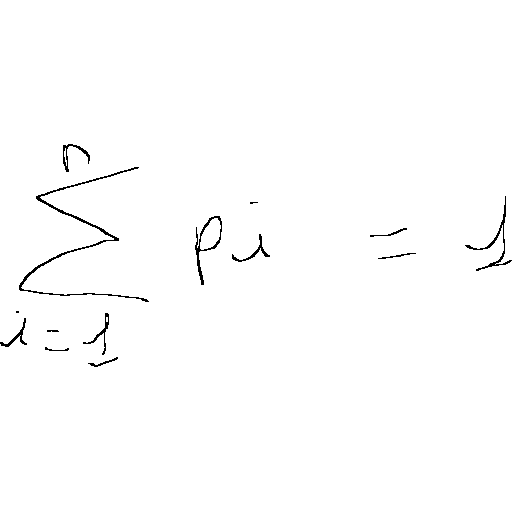 \sum_{i=1}^{n} p_i = 1